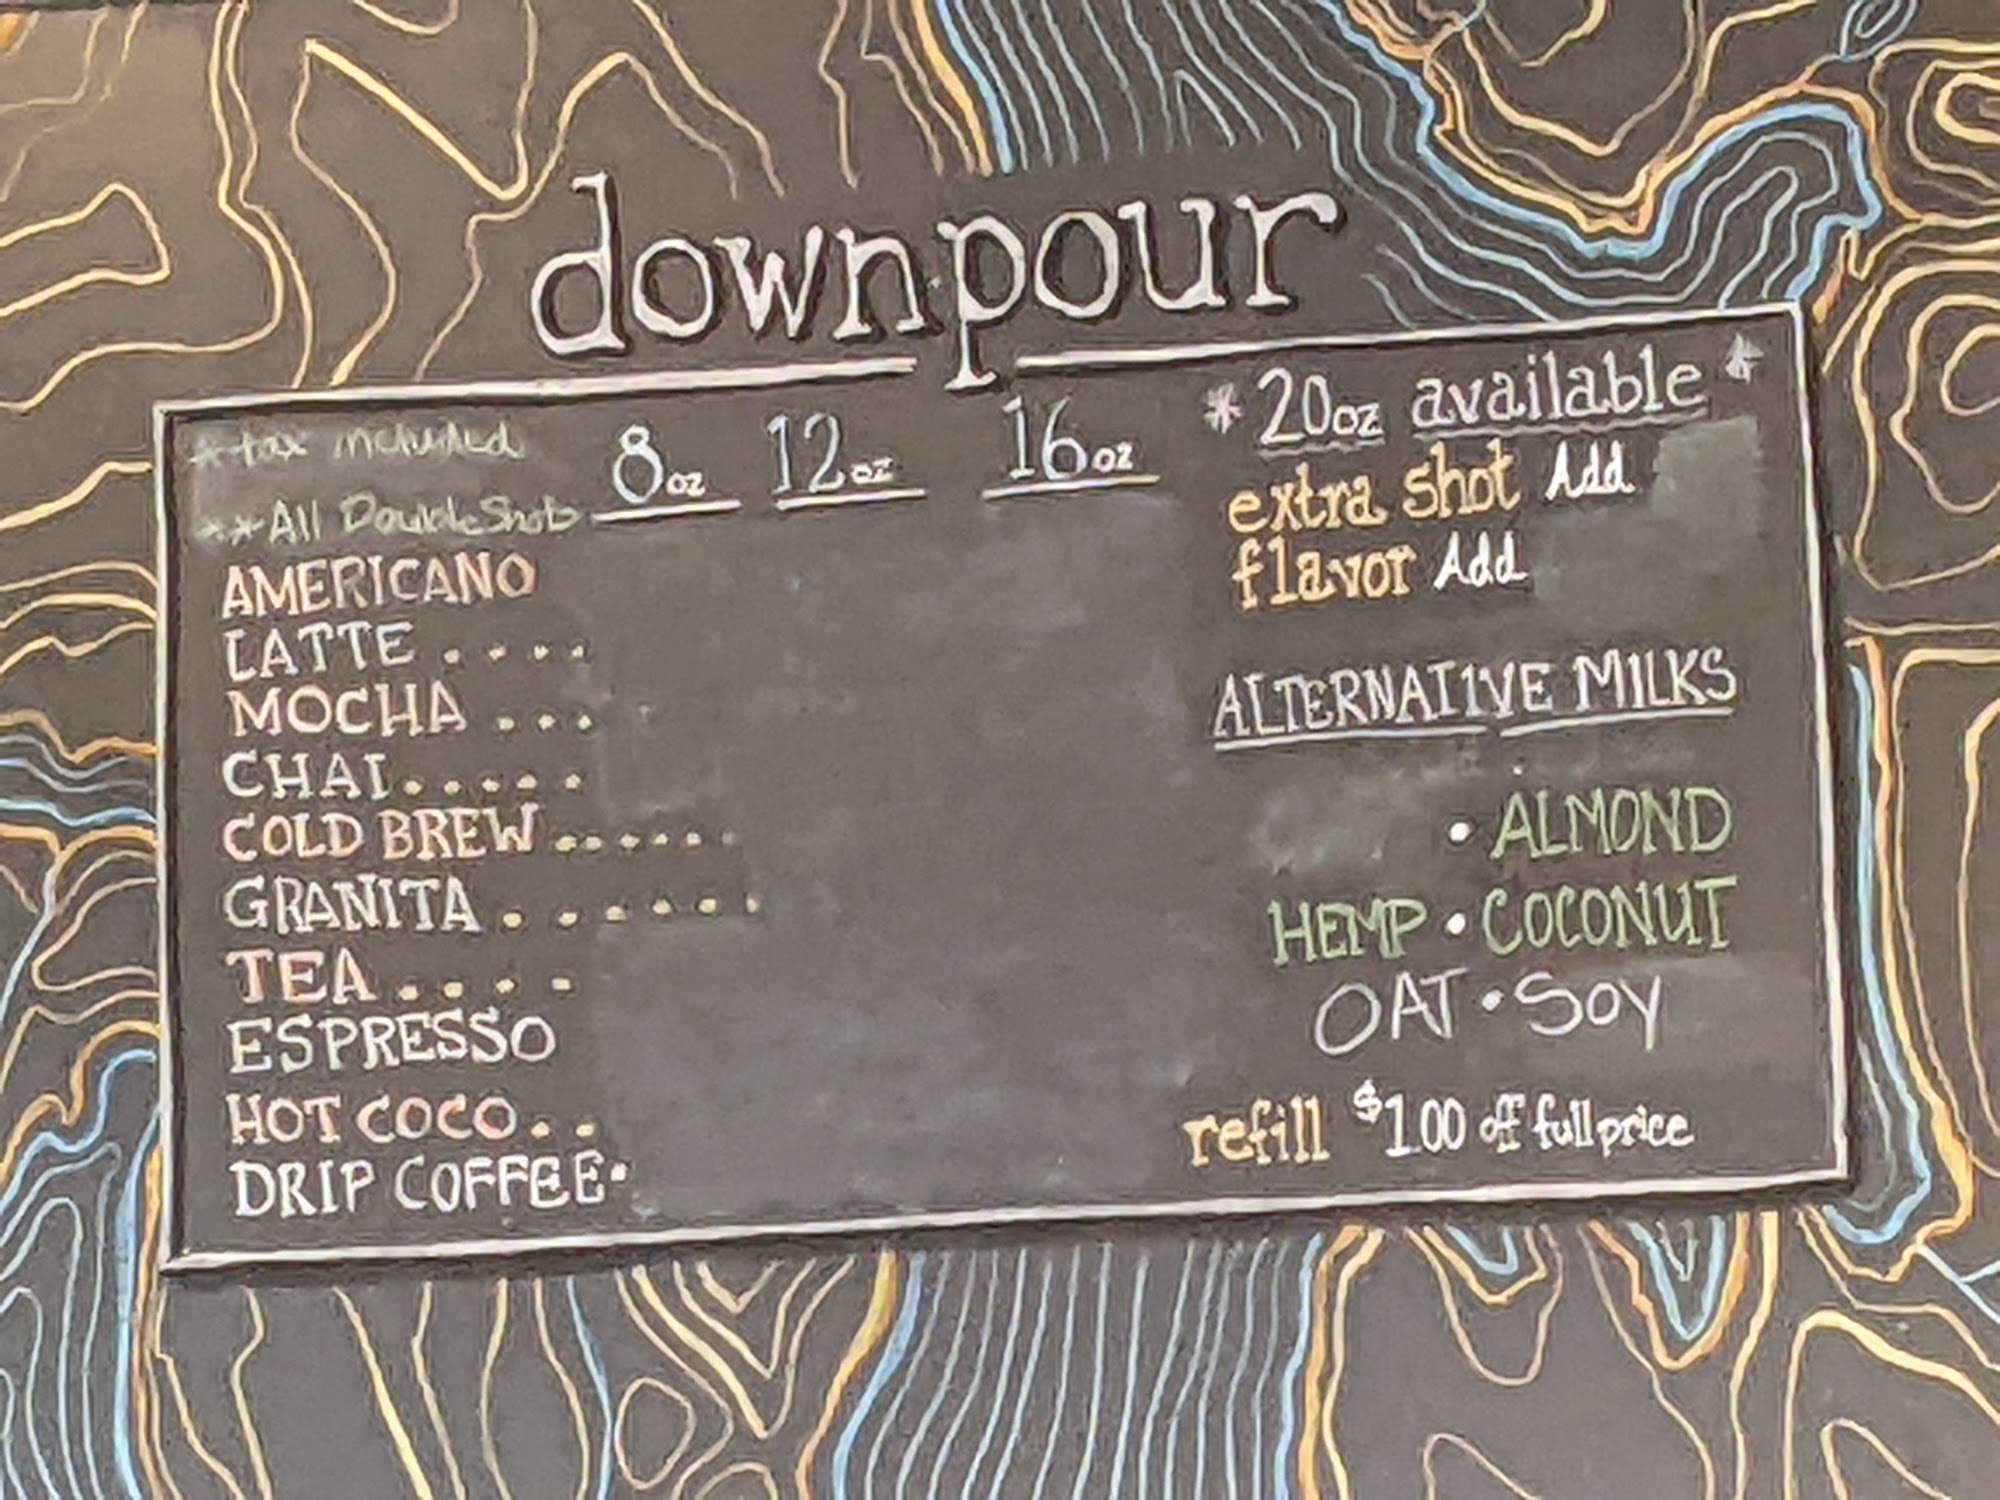 downpour
*tax included
**All Double Shots
8oz 12oz 16oz
AMERICANO
LATTE ....
MOCHA ...
CHAI.....
COLD BREW......
GRANITA ......
TEA ....
ESPRESSO
HOT COCO..
DRIP COFFEE.
*20oz available*
extra shot Add
flavor Add
ALTERNATIVE MILKS
• ALMOND
HEMP • COCONUT
OAT • SOY
refill $1.00 off full price